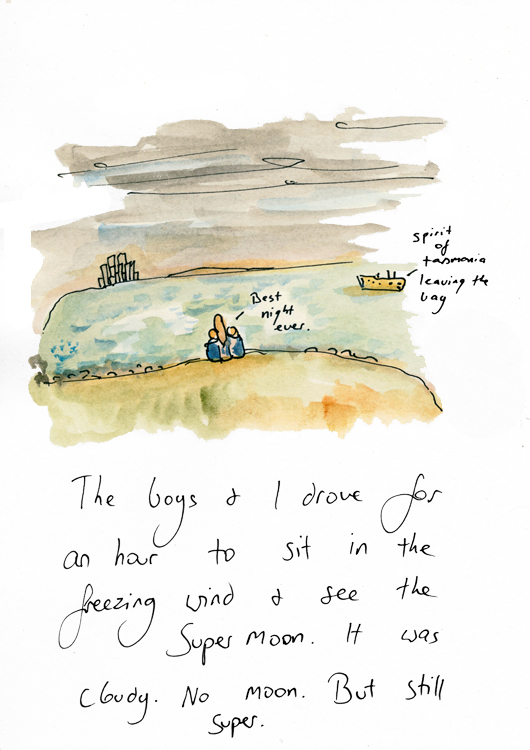 spirit
of
tasmania
leaving the
bay
Best
night
ever.
The boys & I drove for
an hour to sit in the
freezing wind & see the
Super Moon. It was
cloudy. No moon. But still
super.